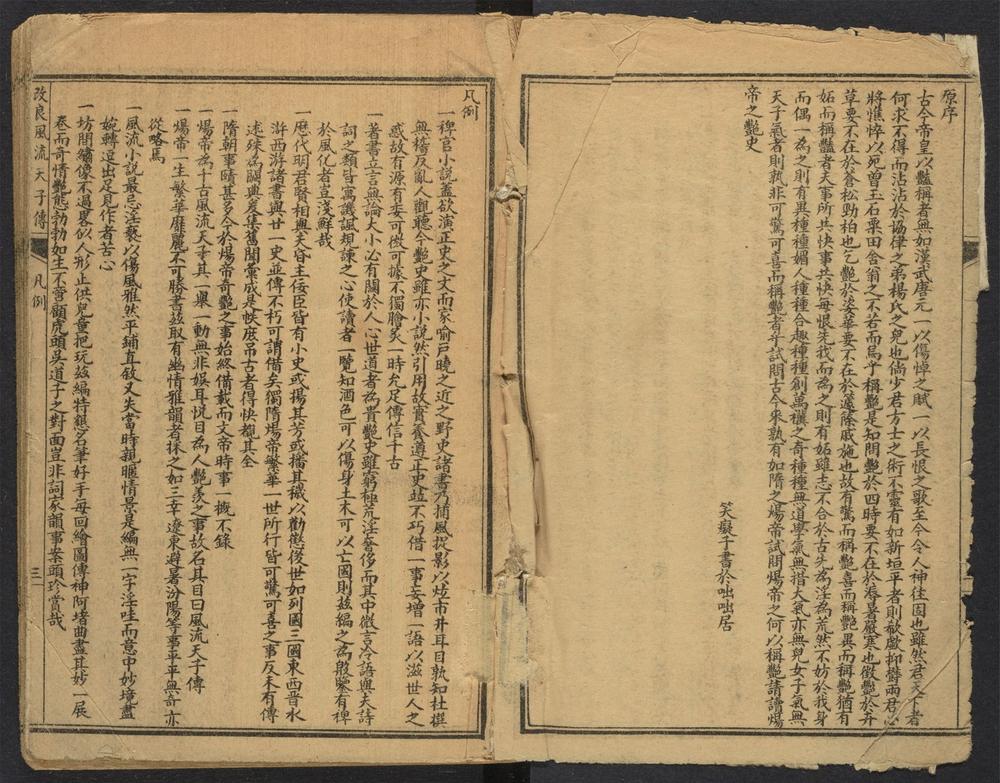 原序
古今帝皇以豔稱者無如漢武唐元一以傷悼之賦一以長恨之歌至今令人神往固也雖然君天下者
何求不得而沾沾於協律之弟楊氏之兒也倘少君方士之術不靈有如新垣平者則欷歔抑鬱兩君必
將憔悴以死曾玉石粟田舍翁之不若而焉乎稱豔是知問豔於四時要不在於春暑嚴寒也徵豔於卉
草要不在於蒼松勁柏也乞豔於姿華要不在於籧篨戚施也故有驚而稱豔喜而稱豔異而稱豔猶有
妬而稱豔者天事所共快事共快每恨先我而為之則有妬雖志不合於古先為淫為荒然不妨於我身
而偶一為之則有異種種媚人種種合趣種種創萬禩之奇種種無道學氣無措大氣亦無兒女子氣無
天子氣者則孰非可驚可喜而稱豔者乎試問古今來孰有如隋之煬帝試問煬帝之何以稱豔請讀煬
帝之豔史
笑癡子書於咄咄居
凡例
一稗官小說蓋欲演正史之文而家喻戶曉之近之野史諸書乃捕風捉影以炫市井耳目孰知杜撰
無稽反亂人觀聽今豔史雖亦小說然引用故實悉遵正史並不巧借一事妄增一語以滋世人之
惑故有源有委可徵可據不獨膾炙一時允足傳信千古
一著書立言無論大小必有關於人心世道者為貴豔史雖窮極荒淫奢侈而其中微言冷語與夫詩
詞之類皆寓譏諷規諫之心使讀者一覽知酒色可以傷身土木可以亡國則茲編之為殷鑒有裨
於風化者豈淺鮮哉
一歷代明君賢相與夫昏主佞臣皆有小史或揚其芳或播其穢以勸懲後世如列國三國東西晉水
滸西游諸書與廿一史並傳不朽可謂備矣獨隋煬帝繁華一世所行皆可驚可喜之事反未有傳
述殊為闕典爰集舊聞彙成是帙庶弔古者得快觀其全
一隋朝事蹟甚多今於煬帝奇豔之事始終備載而文帝時事一概不錄
一煬帝為千古風流天子其一舉一動無非娛耳悅目為人豔羨之事故名其目曰風流天子傳
一煬帝一生繁華靡麗不可勝書茲取有幽情雅韻者採之如三幸遼東避暑汾陽等事平平無奇亦
從略焉
一風流小說最忌淫褻以傷風雅然平鋪直敘又失當時親暱情景是編無一字淫哇而意中妙境盡
婉轉逗出足見作者苦心
一坊間繡像不過畧似人形止供兒童把玩茲編特懇名筆好手每回繪圖傳神阿堵曲盡其妙一展
卷而奇情豔態勃勃如生不啻顧虎頭吳道子之對面豈非詞家韻事案頭珍賞哉
改良風流天子傳
凡例
三